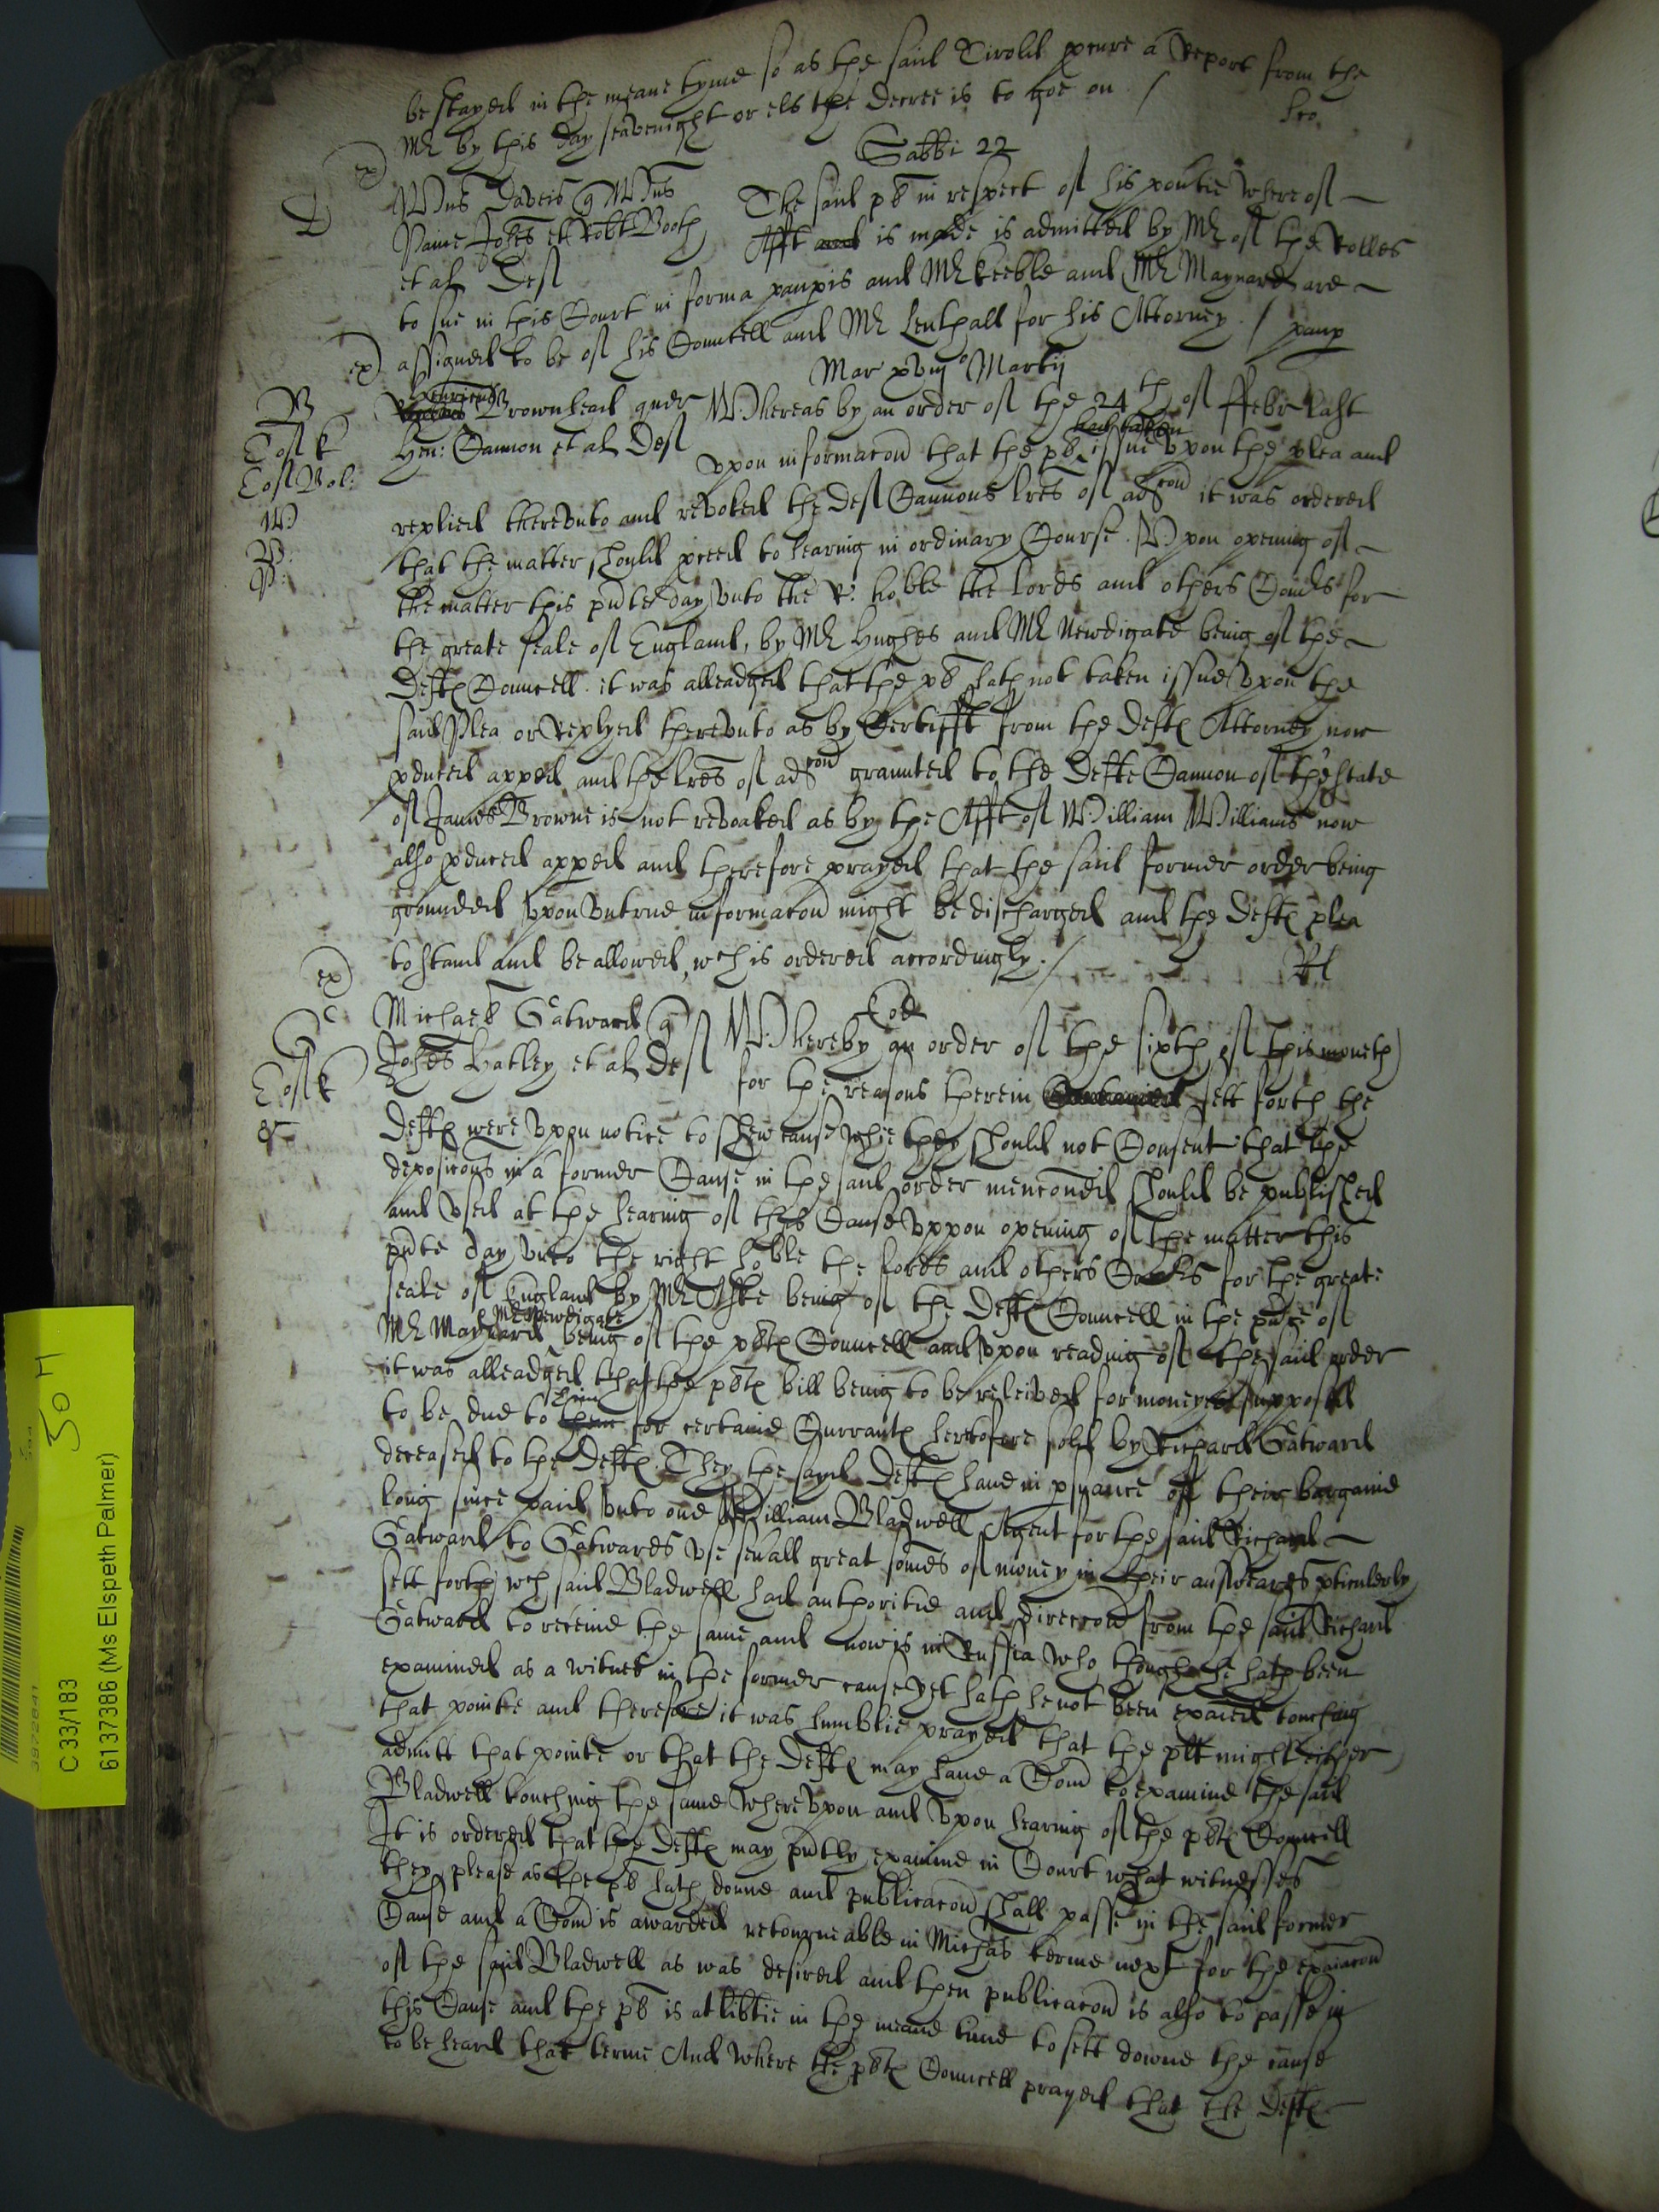 be stayed in the meane tyme so as the said Tirold pcure a Report from the
Mr by this day seavenight or els the Decree is to goe on /
Sabbi 22
ex
D
Wms Daveis q Wms
Paine Johes et Robt Booth
et al Def
The said pl in respect of his povtie whereof
Afft and is made is admitted by Mr of the Rolles
to sue in this Court in forma paupis and Mr Keeble and Mr Maynard are
assigned to be of his Councell and Mr Lenthall for his Attorney / paup
ex
Mar xviij o Martij
B
Brownhead quer
Hen: Cannon et al Def
Whereas by an order of the 24 th of ffebr last
hath taken
vpon informacon that the pl issue vpon the plea and
replied therevnto and revoked the Def Cannons lres of adcon it was ordered
that the matter should pceed to hearing in ordinary Course. Vpon opening of
the matter this pnte day vnto the R: hoble the Lords and others Comrs for
the greate seale of England, by Mr Hughes and Mr Newdigate being of the
Defts Councell it was alleadged that the pl hath not taken issue vpon the
said Plea or Replyed therevnto as by Certifft from the Defts Attorney now
pduced apped and the lres of adcon graunted to the Defte Cannon of the state
of James Browne is not revoaked as by the Afft of William Williams now
also pduced apped and therefore prayed that the said former order being
grounded vpon vntrue informacon might be discharged and the Defts plea
to stand and be allowed, wch is ordered accordingly /
ex
G
Michael Gatward q
Johes Hatley et al Def
Eod
Whereby an order of the sixth of this moneth
for the reasons therein sett forth the
Defts were vpon notice to shew cause whie they should not Consent that the
deposicons in a former Cause in the said order mencioned should be published
and vsed at the hearing of this Cause vppon opening of the matter this
pnte day vnto the right hoble the Lords and others Comrs for the greate
seale of England by Mr Aske being of the Defts Councell in the pnce of
Mr Newdigate
Mr Maynard being of the plts Councell and vpon reading of the said order
it was alleadged that the plts bill being to be releived for moneyes supposed
to be due to him for certaine Currants hertofore sold by Richard Gatward
deceased to the Defts. They the sayd Defts haue in psuance of their bargaine
long since paid vnto one William Bladwell Agent for the said Richard
Gatward to Gatwards vse seuall great somes of money in their answeares pticulerly
sett forth wch said Bladwell had authoritie and direccon from the said Richard
Gatward to receiue the same and now is in Russia who though he hath been
examined as a witnes in the former cause yet hath he not been exaied touching
that pointe and therefore it was humblie prayed that the plt might either
admitt that pointe or that the Defts may haue a Com to examine the said
Bladwell touching the same wherevpon and vpon hearing of the plts Councell
It is ordered that the Defts may pntly examine in Court what witnesses
they please as the pl hath donne and publicacon shall passe in the said former
Cause and a Com is awarded retourneable in Michas terme next for the exaiacon
of the said Bladwell as was desired and then publicacon is also to passe in
this Cause and the pl is at libtie in the meane time to sett downe the cause
to be heard that terme And where the plts Councell prayed that the Defts
C 33/183
6137386 (Ms Elspeth Palmer)